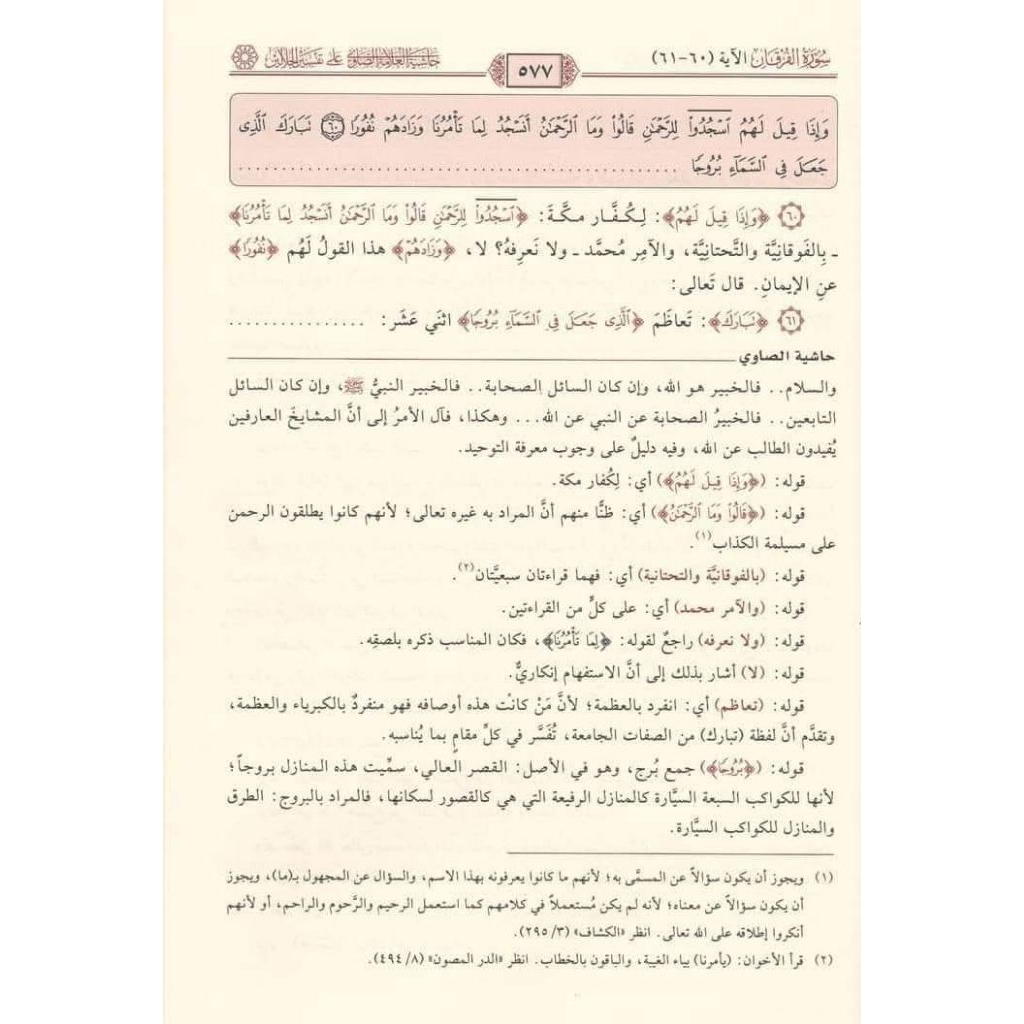 سُورَةُ الفُرْقَان الآية (٦٠-٦١)
٥٧٧
حاشية العلامة الصاوي على تفسير الجلالين
وَإِذَا قِيلَ لَهُمُ ٱسْجُدُواْ لِلرَّحْمَٰنِ قَالُواْ وَمَا ٱلرَّحْمَٰنُ أَنَسْجُدُ لِمَا تَأْمُرُنَا وَزَادَهُمْ نُفُورًا ۩ ٦٠ تَبَارَكَ ٱلَّذِى
جَعَلَ فِى ٱلسَّمَآءِ بُرُوجًا ........................................
٦٠ ﴿وَإِذَا قِيلَ لَهُمُ﴾: لِكُفَّار مكَّةَ: ﴿ٱسْجُدُواْ لِلرَّحْمَٰنِ قَالُواْ وَمَا ٱلرَّحْمَٰنُ أَنَسْجُدُ لِمَا تَأْمُرُنَا﴾
ـ بِالفَوقانِيَّة والتَّحتانِيَّة، والآمِر مُحمَّد ـ ولا نَعرِفهُ؟ لا، ﴿وَزَادَهُمْ﴾ هذا القولُ لَهُم ﴿نُفُورًا﴾
عنِ الإيمانِ. قال تَعالى:
٦١ ﴿تَبَارَكَ﴾: تَعاظَمَ ﴿ٱلَّذِى جَعَلَ فِى ٱلسَّمَآءِ بُرُوجًا﴾ اثنَي عَشَر: ................
حاشية الصاوي
والسلام.. فالخبير هو الله، وإن كان السائل الصحابة.. فالخبير النبيُّ ﷺ، وإن كان السائل
التابعين.. فالخبيرُ الصحابة عن النبي عن الله... وهكذا، فآل الأمرُ إلى أنَّ المشايخَ العارفين
يُفيدون الطالب عن الله، وفيه دليلٌ على وجوب معرفة التوحيد.
قوله: (﴿وَإِذَا قِيلَ لَهُمُ﴾) أي: لِكُفار مكة.
قوله: (﴿قَالُواْ وَمَا ٱلرَّحْمَٰنُ﴾) أي: ظنًّا منهم أنَّ المراد به غيره تعالى؛ لأنهم كانوا يطلقون الرحمن
على مسيلمة الكذاب(١).
قوله: (بالفوقانيَّة والتحتانية) أي: فهما قراءتان سبعيَّتان(٢).
قوله: (والآمر محمد) أي: على كلٍّ من القراءتين.
قوله: (ولا نعرفه) راجعٌ لقوله: ﴿لِمَا تَأْمُرُنَا﴾، فكان المناسب ذكره بلصقِه.
قوله: (لا) أشار بذلك إلى أنَّ الاستفهام إنكاريٌّ.
قوله: (تعاظم) أي: انفرد بالعظمة؛ لأنَّ مَنْ كانتْ هذه أوصافه فهو منفردٌ بالكبرياء والعظمة،
وتقدَّم أنَّ لفظة (تبارك) من الصفات الجامعة، تُفَسَّر في كلِّ مقامٍ بما يُناسبه.
قوله: (﴿بُرُوجًا﴾) جمع بُرج، وهو في الأصل: القصر العالي، سمِّيت هذه المنازل بروجاً؛
لأنها للكواكب السبعة السيَّارة كالمنازل الرفيعة التي هي كالقصور لسكانها، فالمراد بالبروج: الطرق
والمنازل للكواكب السيَّارة.
(١) ويجوز أن يكون سؤالاً عن المسمَّى به؛ لأنهم ما كانوا يعرفونه بهذا الاسم، والسؤال عن المجهول بـ(ما)، ويجوز
أن يكون سؤالاً عن معناه؛ لأنه لم يكن مُستعملاً في كلامهم كما استعمل الرحيم والرَّحوم والراحم، أو لأنهم
أنكروا إطلاقه على الله تعالى. انظر «الكشاف» (٢٩٥/٣).
(٢) قرأ الأخوان: (يأمرنا) بياء الغيبة، والباقون بالخطاب. انظر «الدر المصون» (٤٩٤/٨).